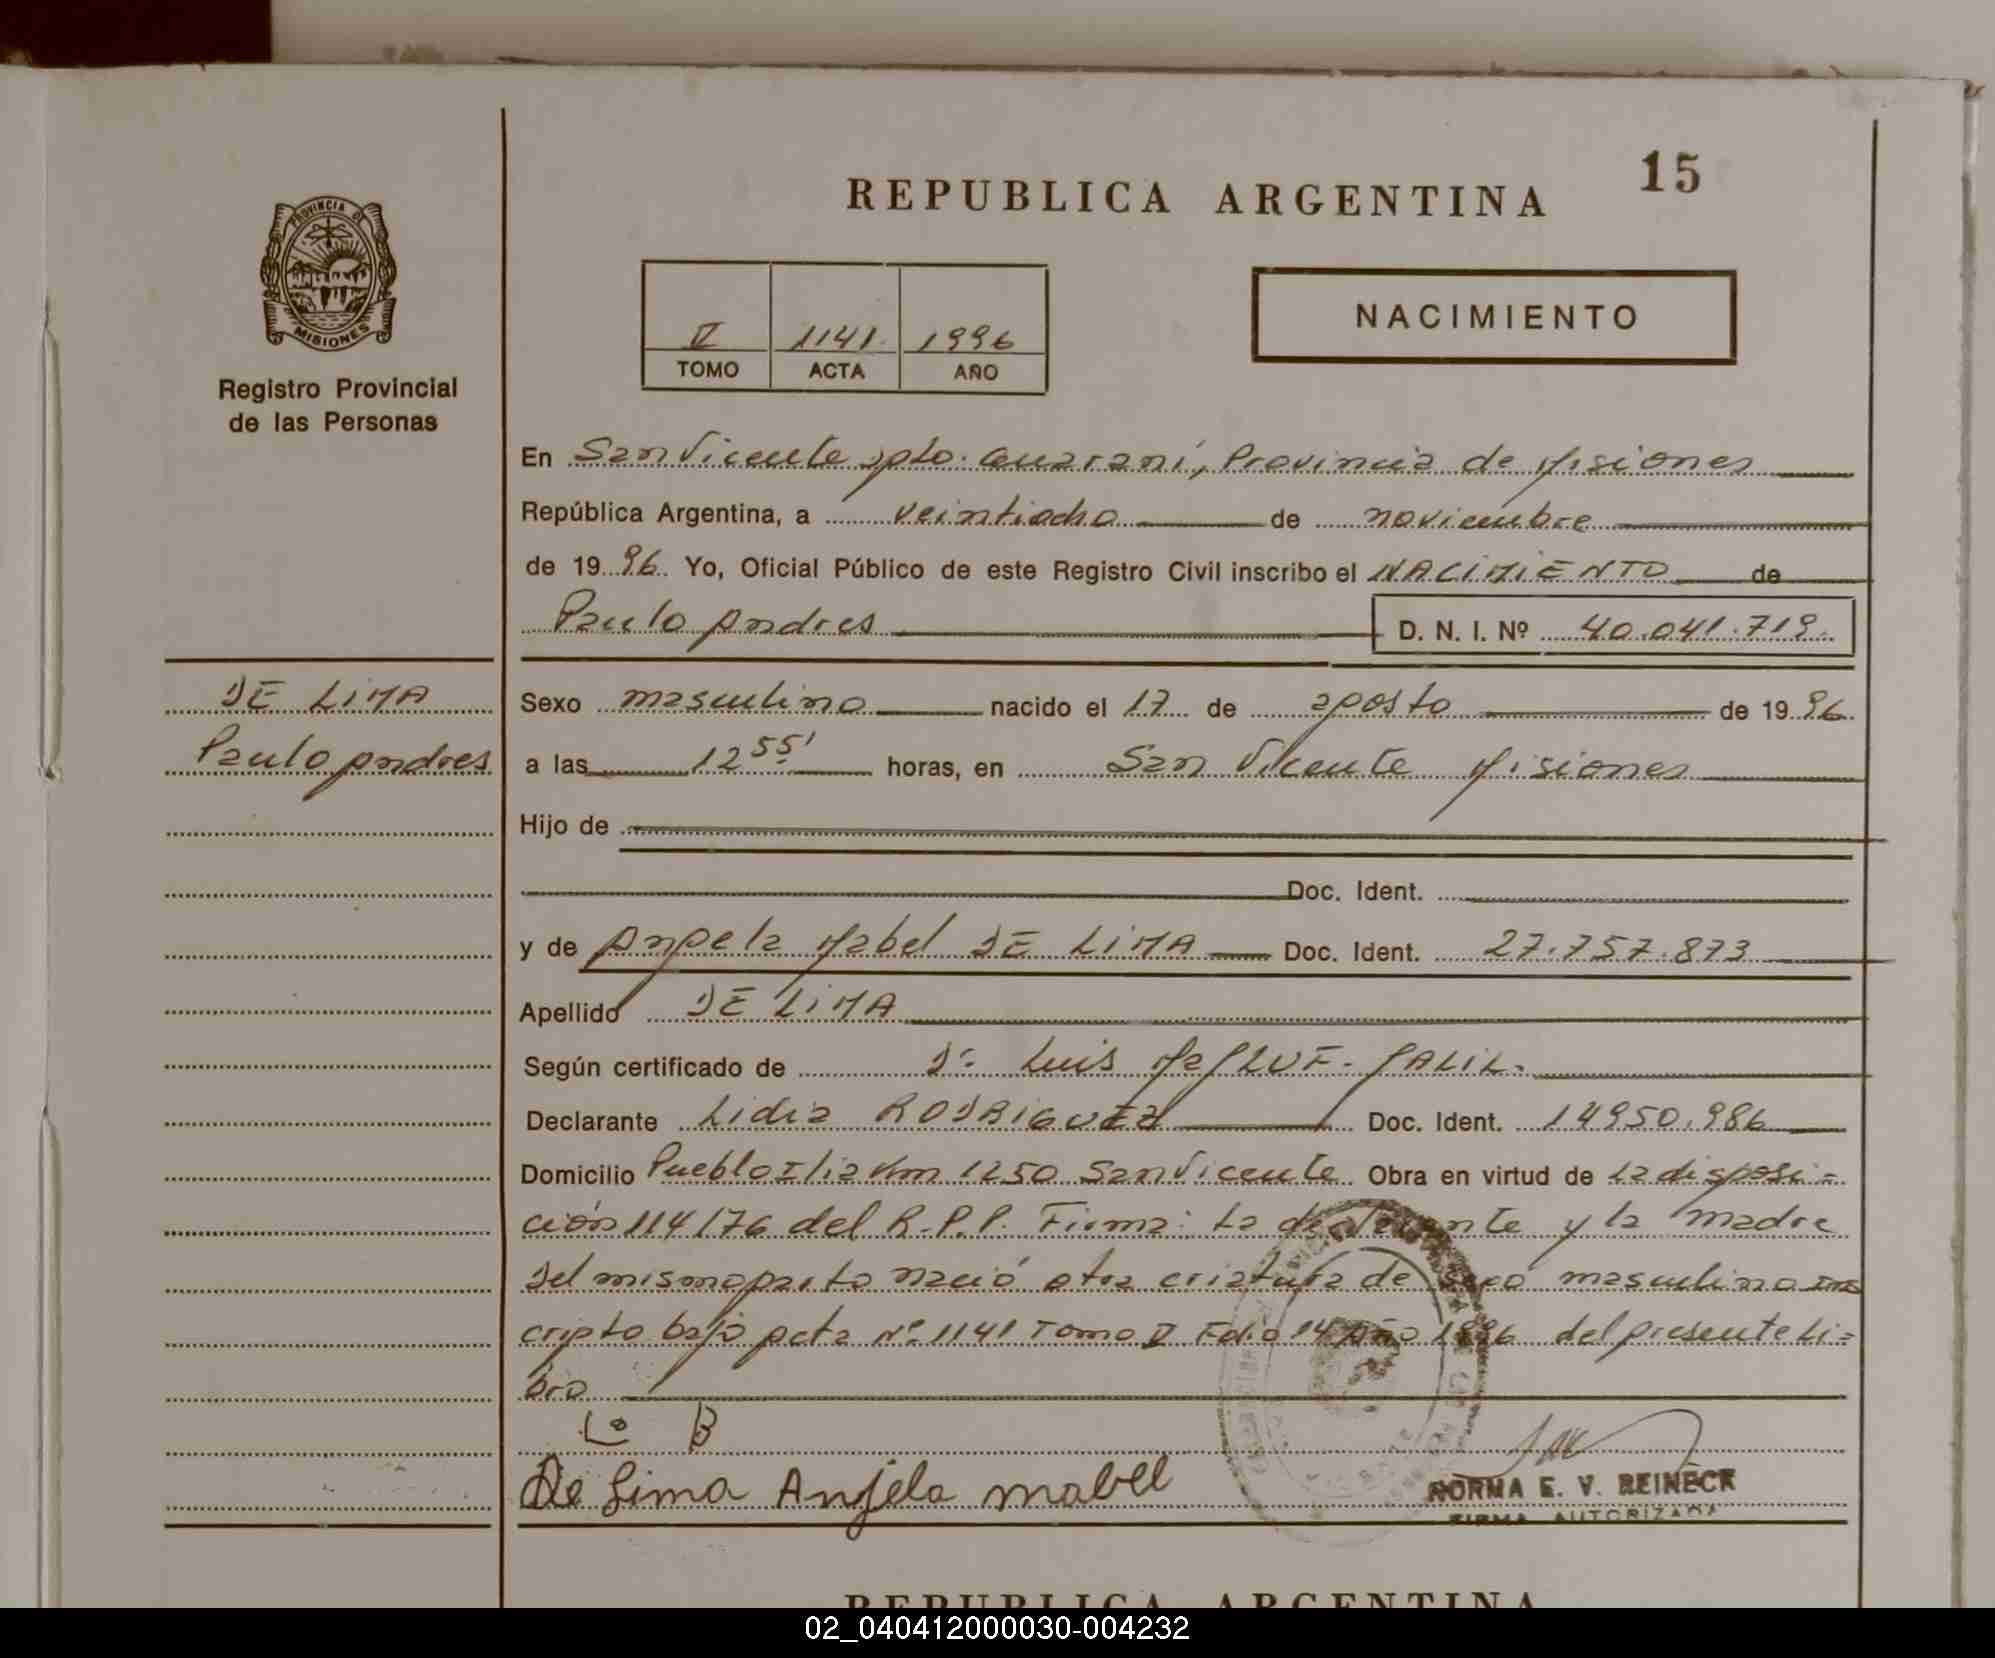 15
REPUBLICA ARGENTINA
PROVINCIA DE
MISIONES
Registro Provincial
de las Personas
II 1141 1996
TOMO ACTA AÑO
NACIMIENTO
En San Vicente Dpto. Guaraní, Provincia de Misiones
República Argentina, a veintiocho de noviembre
de 1996 Yo, Oficial Público de este Registro Civil inscribo el NACIMIENTO de
Paulo Andres D. N. I. Nº 40.041.719.
DE LIMA
Paulo Andres
Sexo masculino nacido el 17 de agosto de 1996.
a las 12 55' horas, en San Vicente Misiones
Hijo de
Doc. Ident.
y de Angela Mabel DE LIMA Doc. Ident. 27.757.873
Apellido DE LIMA
Según certificado de Dr. Luis
Declarante Lidia RODRIGUEZ Doc. Ident. 14950.986
Domicilio Pueblo Ilia Km 1250 San Vicente Obra en virtud de la disposi=
ción 114/76 del R.P.P. Firma: La declarante y la madre
Del mismo parto nació otra criatura de sexo masculino ins
cripto bajo Acta Nº 1141 Tomo II Folio 14 Año 1996 del presente Li=
bro
L B
De Lima Anjela mabel
NORMA E. V. REINECK
FIRMA AUTORIZADA
REPUBLICA ARGENTINA
02_040412000030-004232